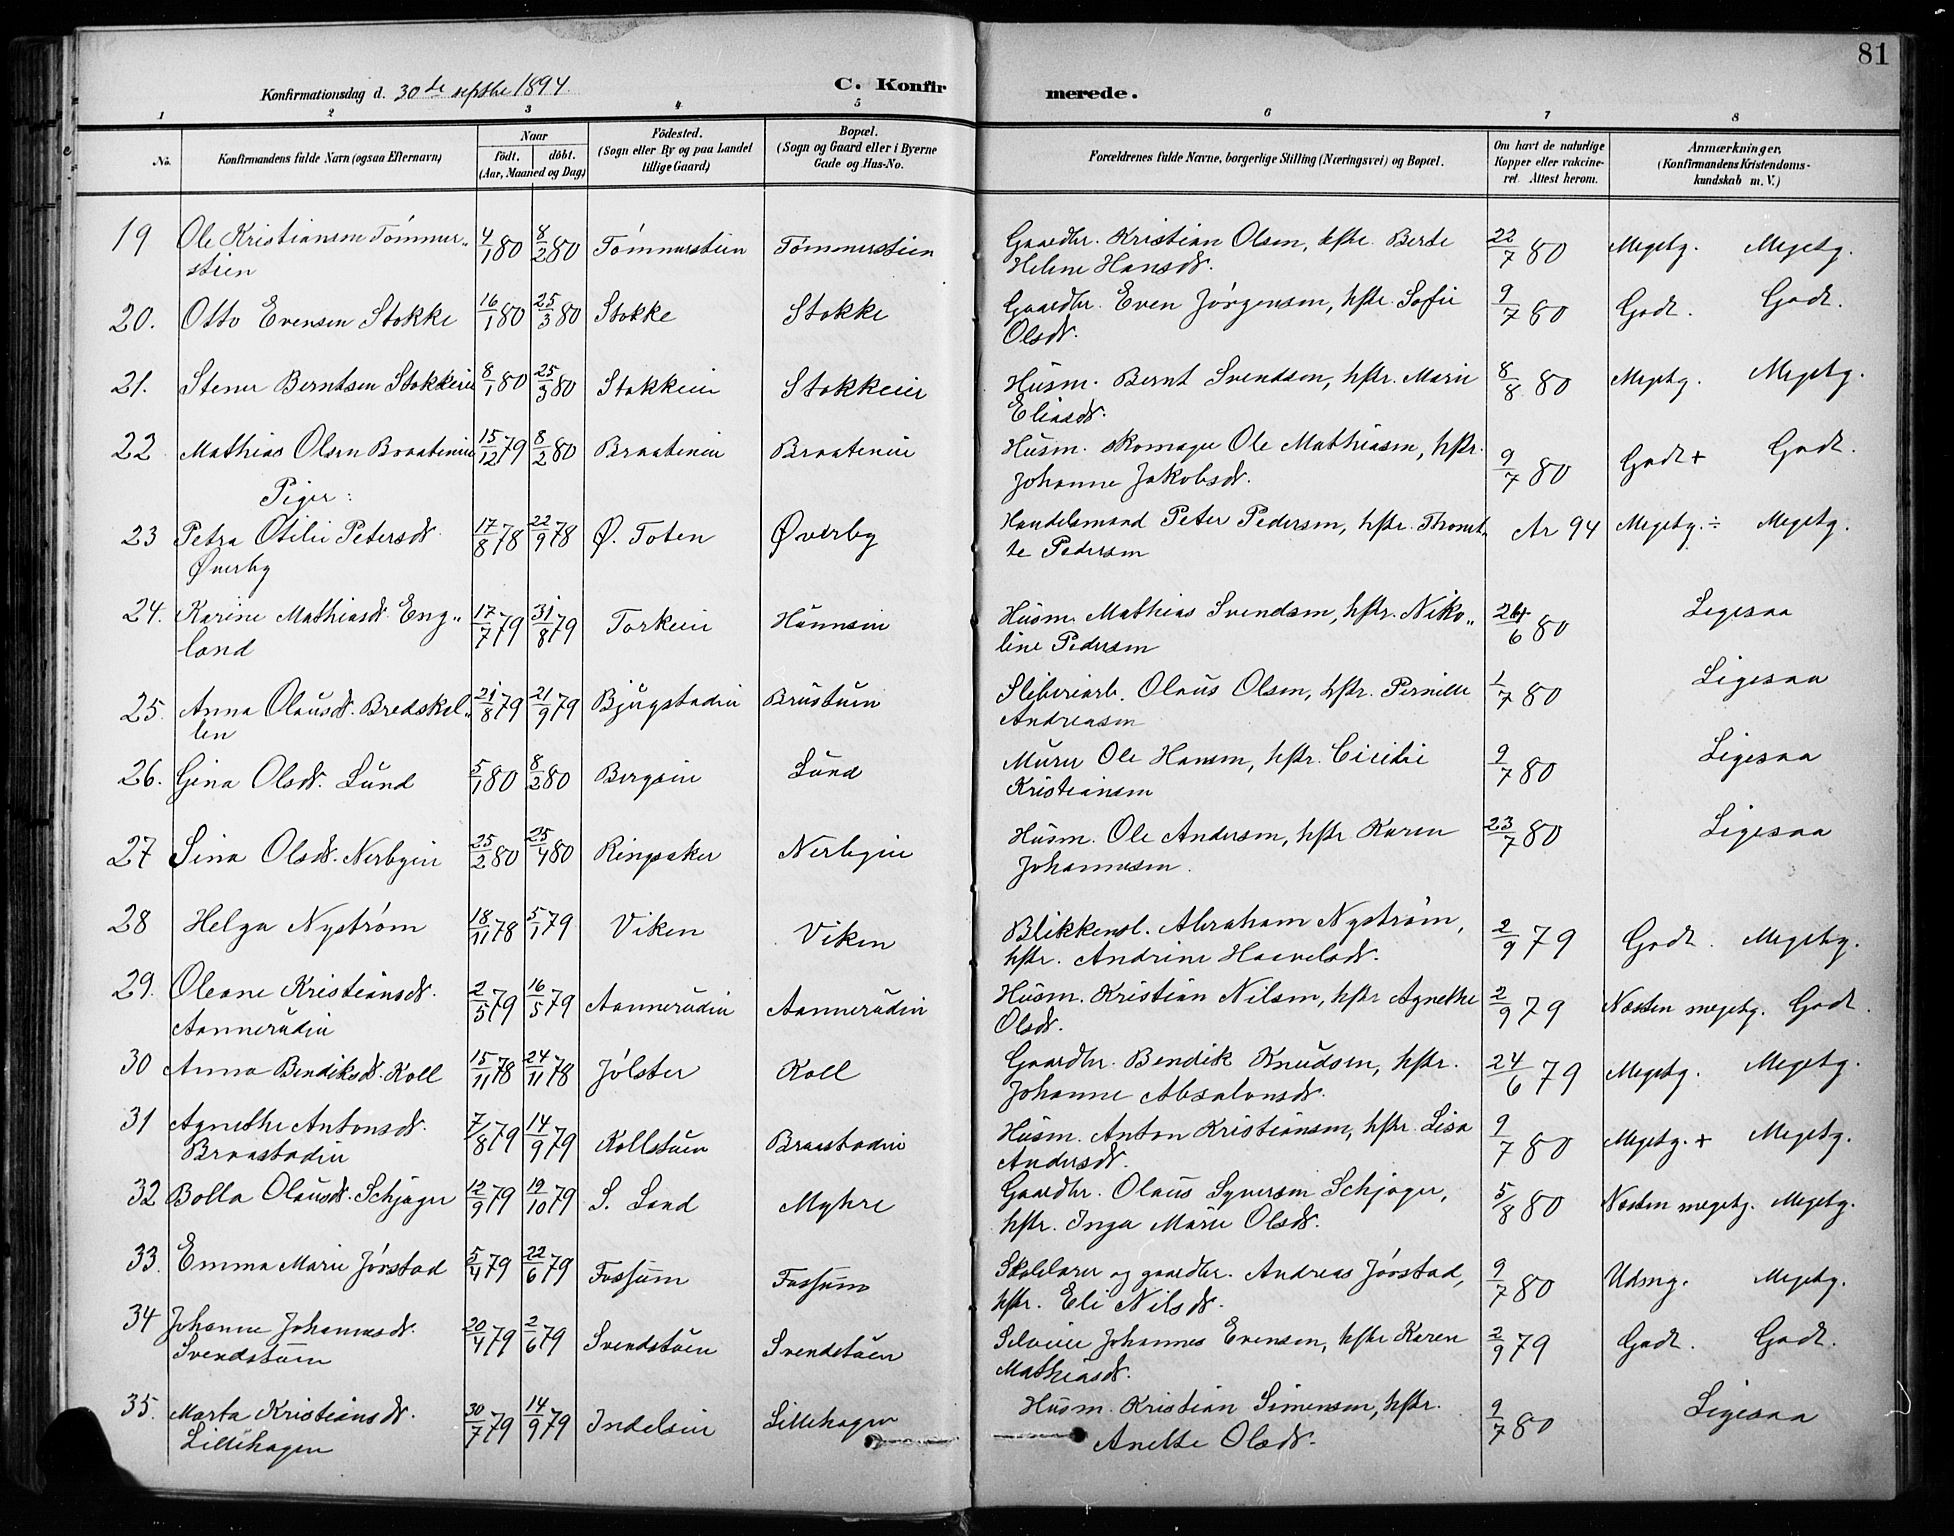 81
Konfirmationsdag d. 30de septbe 1894. C. Konfirmerede.
1 2 3 4 5 6 7 8
No. Konfirmandens fulde Navn (ogsaa Efternavn) Naar födt. döbt. (Aar, Maaned og Dag) Födested. (Sogn eller By og paa Landet tillige Gaard) Bopæl. (Sogn og Gaard eller i Byerne Gade og Hus-No. Forældrenes fulde Navne, borgerlige Stilling (Næringsvei) og Bopæl. Om havt de naturlige Kopper eller vakcineret. Attest herom. Anmærkninger. (Konfirmandens Kristendomskundskab m. V.)
19 Ole Kristiansen Tömmer„ 4/1 80 8/2 80 Tömmerstien Tömmerstien Gaardbr. Kristian Olsen, hstr. Berte 22/7 80 Megetg. Megetg.
stien Helene Hansdr.
20. Otto Evensen Stokke 16/1 80 25/3 80 Stokke Stokke Gaardbr. Even Jörgensen, hstr. Sofie 9/7 80 Godt. Godt.
Olsdr.
21. Stener Berntsen Stokkeie 8/1 80 25/3 80 Stokkeier Stokkeier Husm. Bernt Svendsen, hstr. Marie 8/8 80 Megetg. Megetg.
Eliasdr.
22 Mathias Olsen Braateneie 15/12 79 8/2 80 Braateneie Braateneie Husm. skomager Ole Mathiasen, hstr. 9/7 80 Godt + Godt.
Johanne Jakobsdr.
Piger:
23 Petra Otilie Petersdr. 17/8 78 22/9 78 Ø. Toten Øverby Handelsmand Peter Pedersen, hstr. Ar 94 Megetg. ÷ Megetg.
Øverby te Pedersen
24. Karine Mathiasdr. Eng„ 17/7 79 31/8 79 Torkeie Hunnseie Husm. Mathias Svendsen, hstr. Niko„ /6 80 Ligesaa
land line Pedersen
25. Anna Olausdr. Bredskal„ 21/8 79 21/9 79 Bjugstadeie Brustuen Sliberiarb. Olaus Olsen, hstr. Pernille 1/7 80 Ligesaa
len Andreasen
26. Gina Olsdr. Lund 5/1 80 8/2 80 Bergseie Lund Murer Ole Hansen, hstr. Cicilie 9/7 80 Ligesaa
Kristiansen
27 Sina Olsdr. Nerbyeie 25/2 80 25/4 80 Ringsaker Nerbyeie Husm. Ole Andersen, hstr Karen 23/7 80 Ligesaa
Johannesen.
28 Helga Nyström 18/11 78 5/1 79 Viken Viken Blikkensl. Abraham Nyström, 2/9 79 Godt. Megetg.
hstr. Andrine Haavelsdr.
29. Oleane Kristiansdr. 2/5 79 16/5 79 Aannerudeie Aannerudeie Husm. Kristian Nilsen, hstr Agnethe 2/9 79 Næsten megetg. Godt.
Aannerudeie Olsdr.
30 Anna Bendiksdr. Koll 15/11 78 24/11 78 Jölster Koll Gaardbr. Bendik Knudsen, hstr. 24/6 79 Megetg. Megetg.
Johanne Absalonsdr.
31 Agnethe Antonsdr. 7/8 79 14/9 79 Kollstuen Braastadeie Husm. Anton Kristiansen, hstr. Lisa 9/7 80 Megetg. + Megetg.
Braastadeie Andersdr.
32 Bolla Olausdr. Schjager 12/9 79 19/10 79 S. Land Myhre Gaardbr. Olaus Syversen Schjager, 5/8 80 Næsten megetg. Megetg.
hstr. Inga Marie Olsdr.
33. Emma Marie Jörstad 5/4 79 22/6 79 Fossum Fossum Skolelærer og gaardbr. Andreas Jörstad, 9/7 80 Udmg. Megetg.
hstr. Eli Nilsdr.
34 Johanne Johannesdr. 20/4 79 2/6 79 Svendstuen Svendstuen Selveier Johannes Evensen, hstr Karen 2/9 79 Godt. Godt.
Svendstuen Mathiasdr.
35. Marta Kristiansdr. 30/7 79 14/9 79 Indelseie Lillehagen Husm. Kristian Simensen, hstr. 9/7 80 Ligesaa
Lillehagen Anette Olsdr.